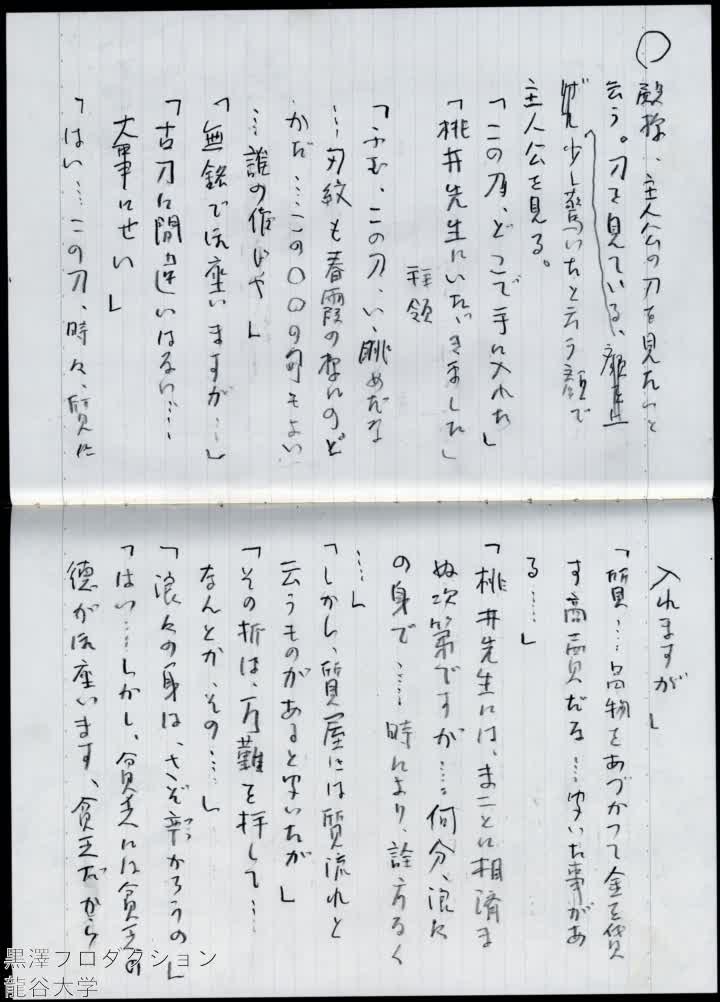 ○
殿様、主人公の刀を見たいと
云う。刀を見ている、顔を上
げ、少し驚いたと云う顔で
主人公を見る。
「この刀、どこで手に入れた」
「桃井先生にいたゞきました」
拝領
「ふむ、この刀、いゝ眺めだな
…刃紋も春霞の様にのど
かだ…この○○の匂もよい
…誰の作ぢや」
「無銘で御座いますが…」
「古刀に間違いはない…
大事にせい」
「はい…この刀、時々、質に
入れますが」
「質…品物をあづかつて金を貸
す商売だな…聞いた事があ
る……」
「桃井先生には、まことに相済ま
ぬ次第ですが…何分、浪々
の身で……時により、詮方なく
……」
「しかし、質屋には質流れと
云うものがあると聞いたが」
「その折は、万難を排して…
なんとか、その…」
「浪々の身は、さぞ辛かろうの」
「はい…しかし、貧乏には貧乏の
徳が御座います、貧乏だから
黒澤プロダクション
龍谷大学